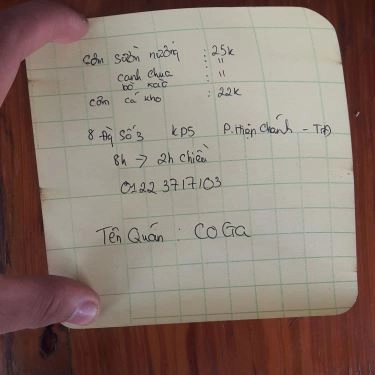 cơm sườn nướng : 25k
canh chua : "
bò xào : "
cơm cá kho : 22k
8 Đg Số 3 KP5 P. Hiệp Chánh - TĐ
8h → 2h chiều
0122 3717103
Tên Quán : CO Ga